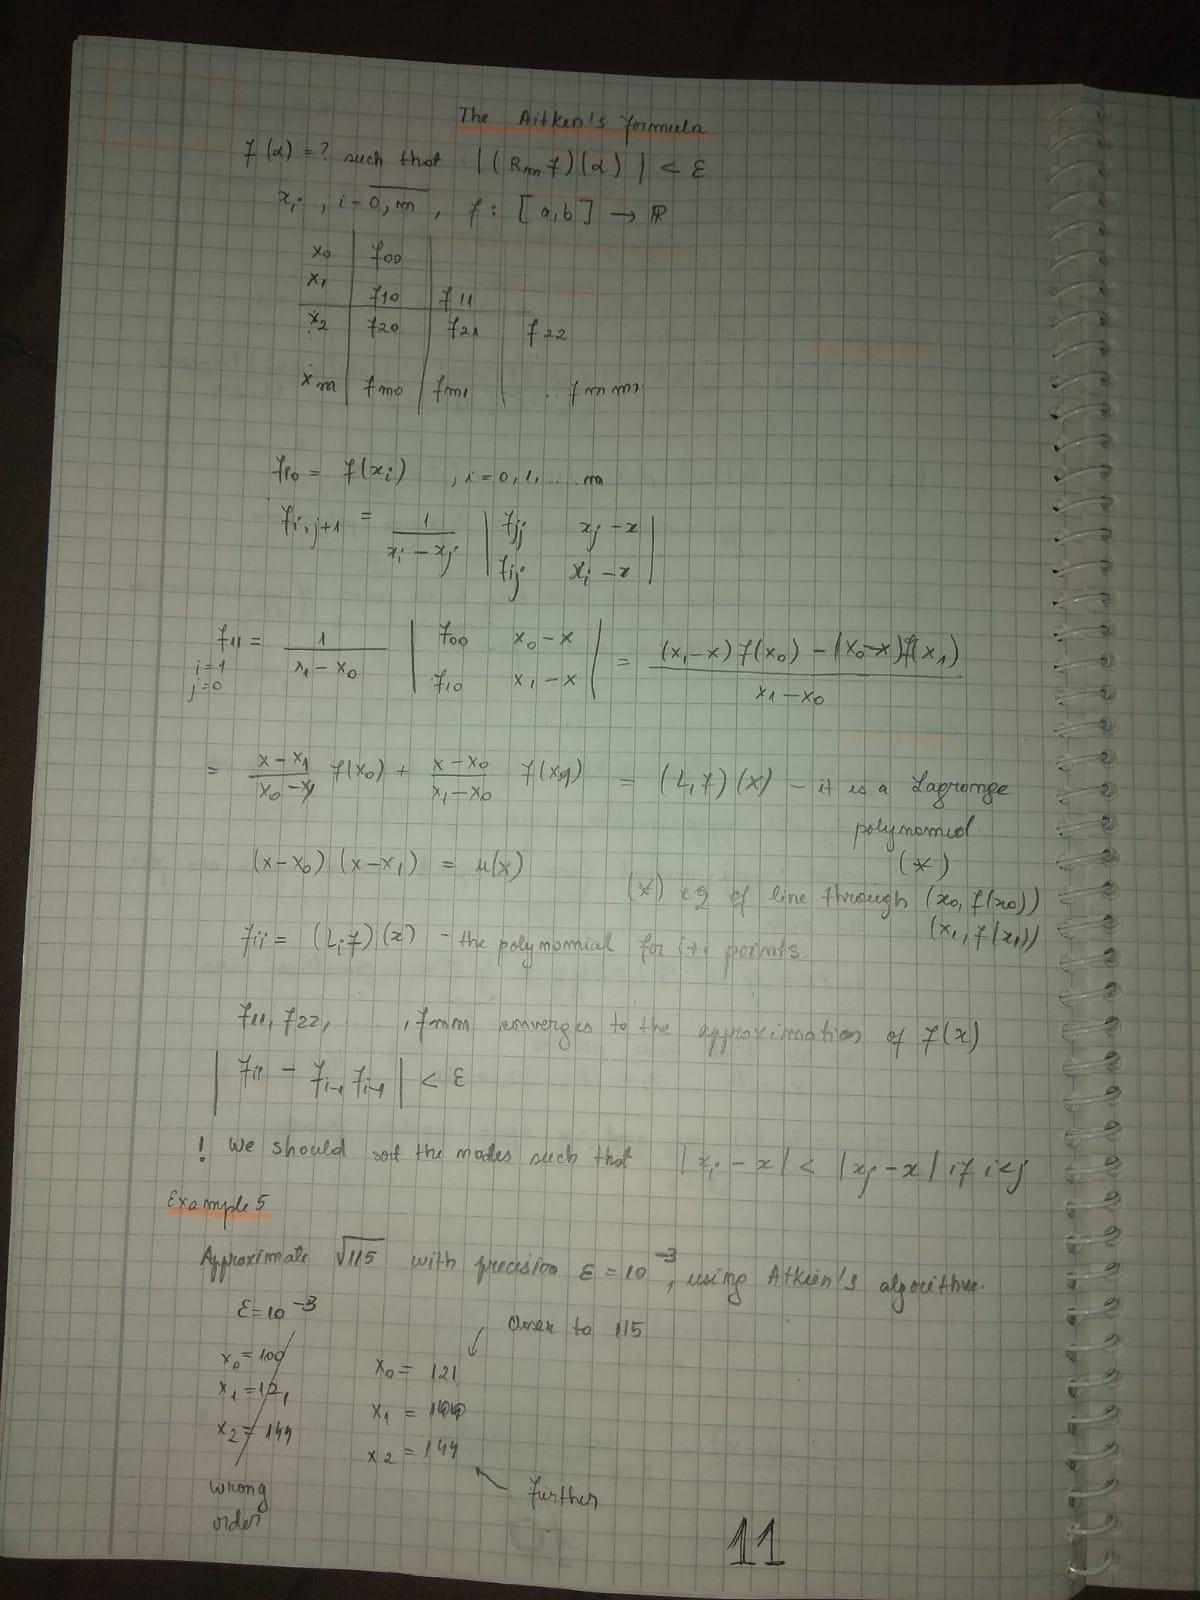 The Aitken's formula
f(α) = ? such that |(Rm f)(α)| < ε
xi, i = 0,m, f: [a,b] → ℝ
x0 | f00
x1 | f10 | f11
x2 | f20 | f21 | f22
xm | fm0 | fm1 | .. fmm
fi0 = f(xi) , i = 0, 1, ... m
fi,j+1 = 1/(xi - xj) | fjj xj - x |
| fij xi - x |
f11 = 1/(x1 - x0) | f00 x0 - x | = ((x1 - x) f(x0) - (x0 - x) f(x1))/(x1 - x0)
i=1 | f10 x1 - x |
j=0
= (x - x1)/(x0 - x1) f(x0) + (x - x0)/(x1 - x0) f(x1) = (L1f)(x) - it is a Lagrange
polynomial
(x - x0)(x - x1) = u(x) (*)
(*) eq of line through (x0, f(x0))
(x1, f(x1))
fii = (Lif)(x) - the polynomial for i+1 points.
f11, f22, ..., fmm converges to the approximation of f(x)
| fii - fi-1 fi-1 | < ε
! We should sort the nodes such that |xi - x| < |xj - x| if i<j
Example 5
Approximate √115 with precision ε = 10^-3, using Atkien's algorithm.
ε = 10^-3
closer to 115
x0 = 100 x0 = 121
x1 = 121 x1 = 100
x2 = 144 x2 = 144
wrong further
order
11